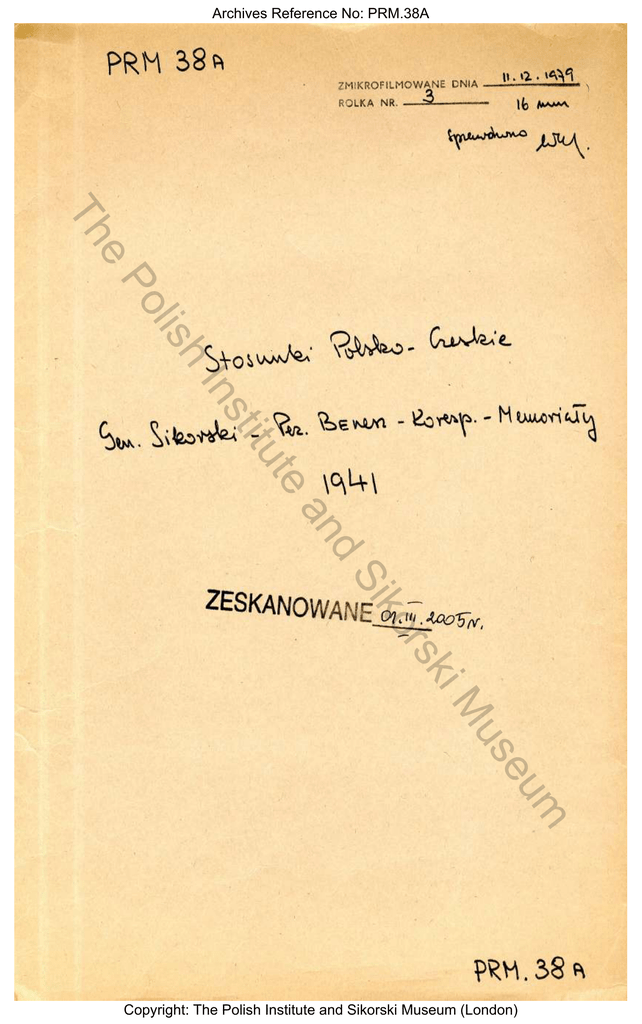 Archives Reference No: PRM.38A
PRM 38A
ZMIKROFILMOWANE DNIA 11.12.1979
ROLKA NR. 3 16 mm
sprawdzono
Stosunki Polsko-Czeskie
Gen. Sikorski - Prez. Benesz - Koresp. - Memoriały
1941
ZESKANOWANE 01.III.2005r.
The Polish Institute and Sikorski Museum
PRM. 38A
Copyright: The Polish Institute and Sikorski Museum (London)